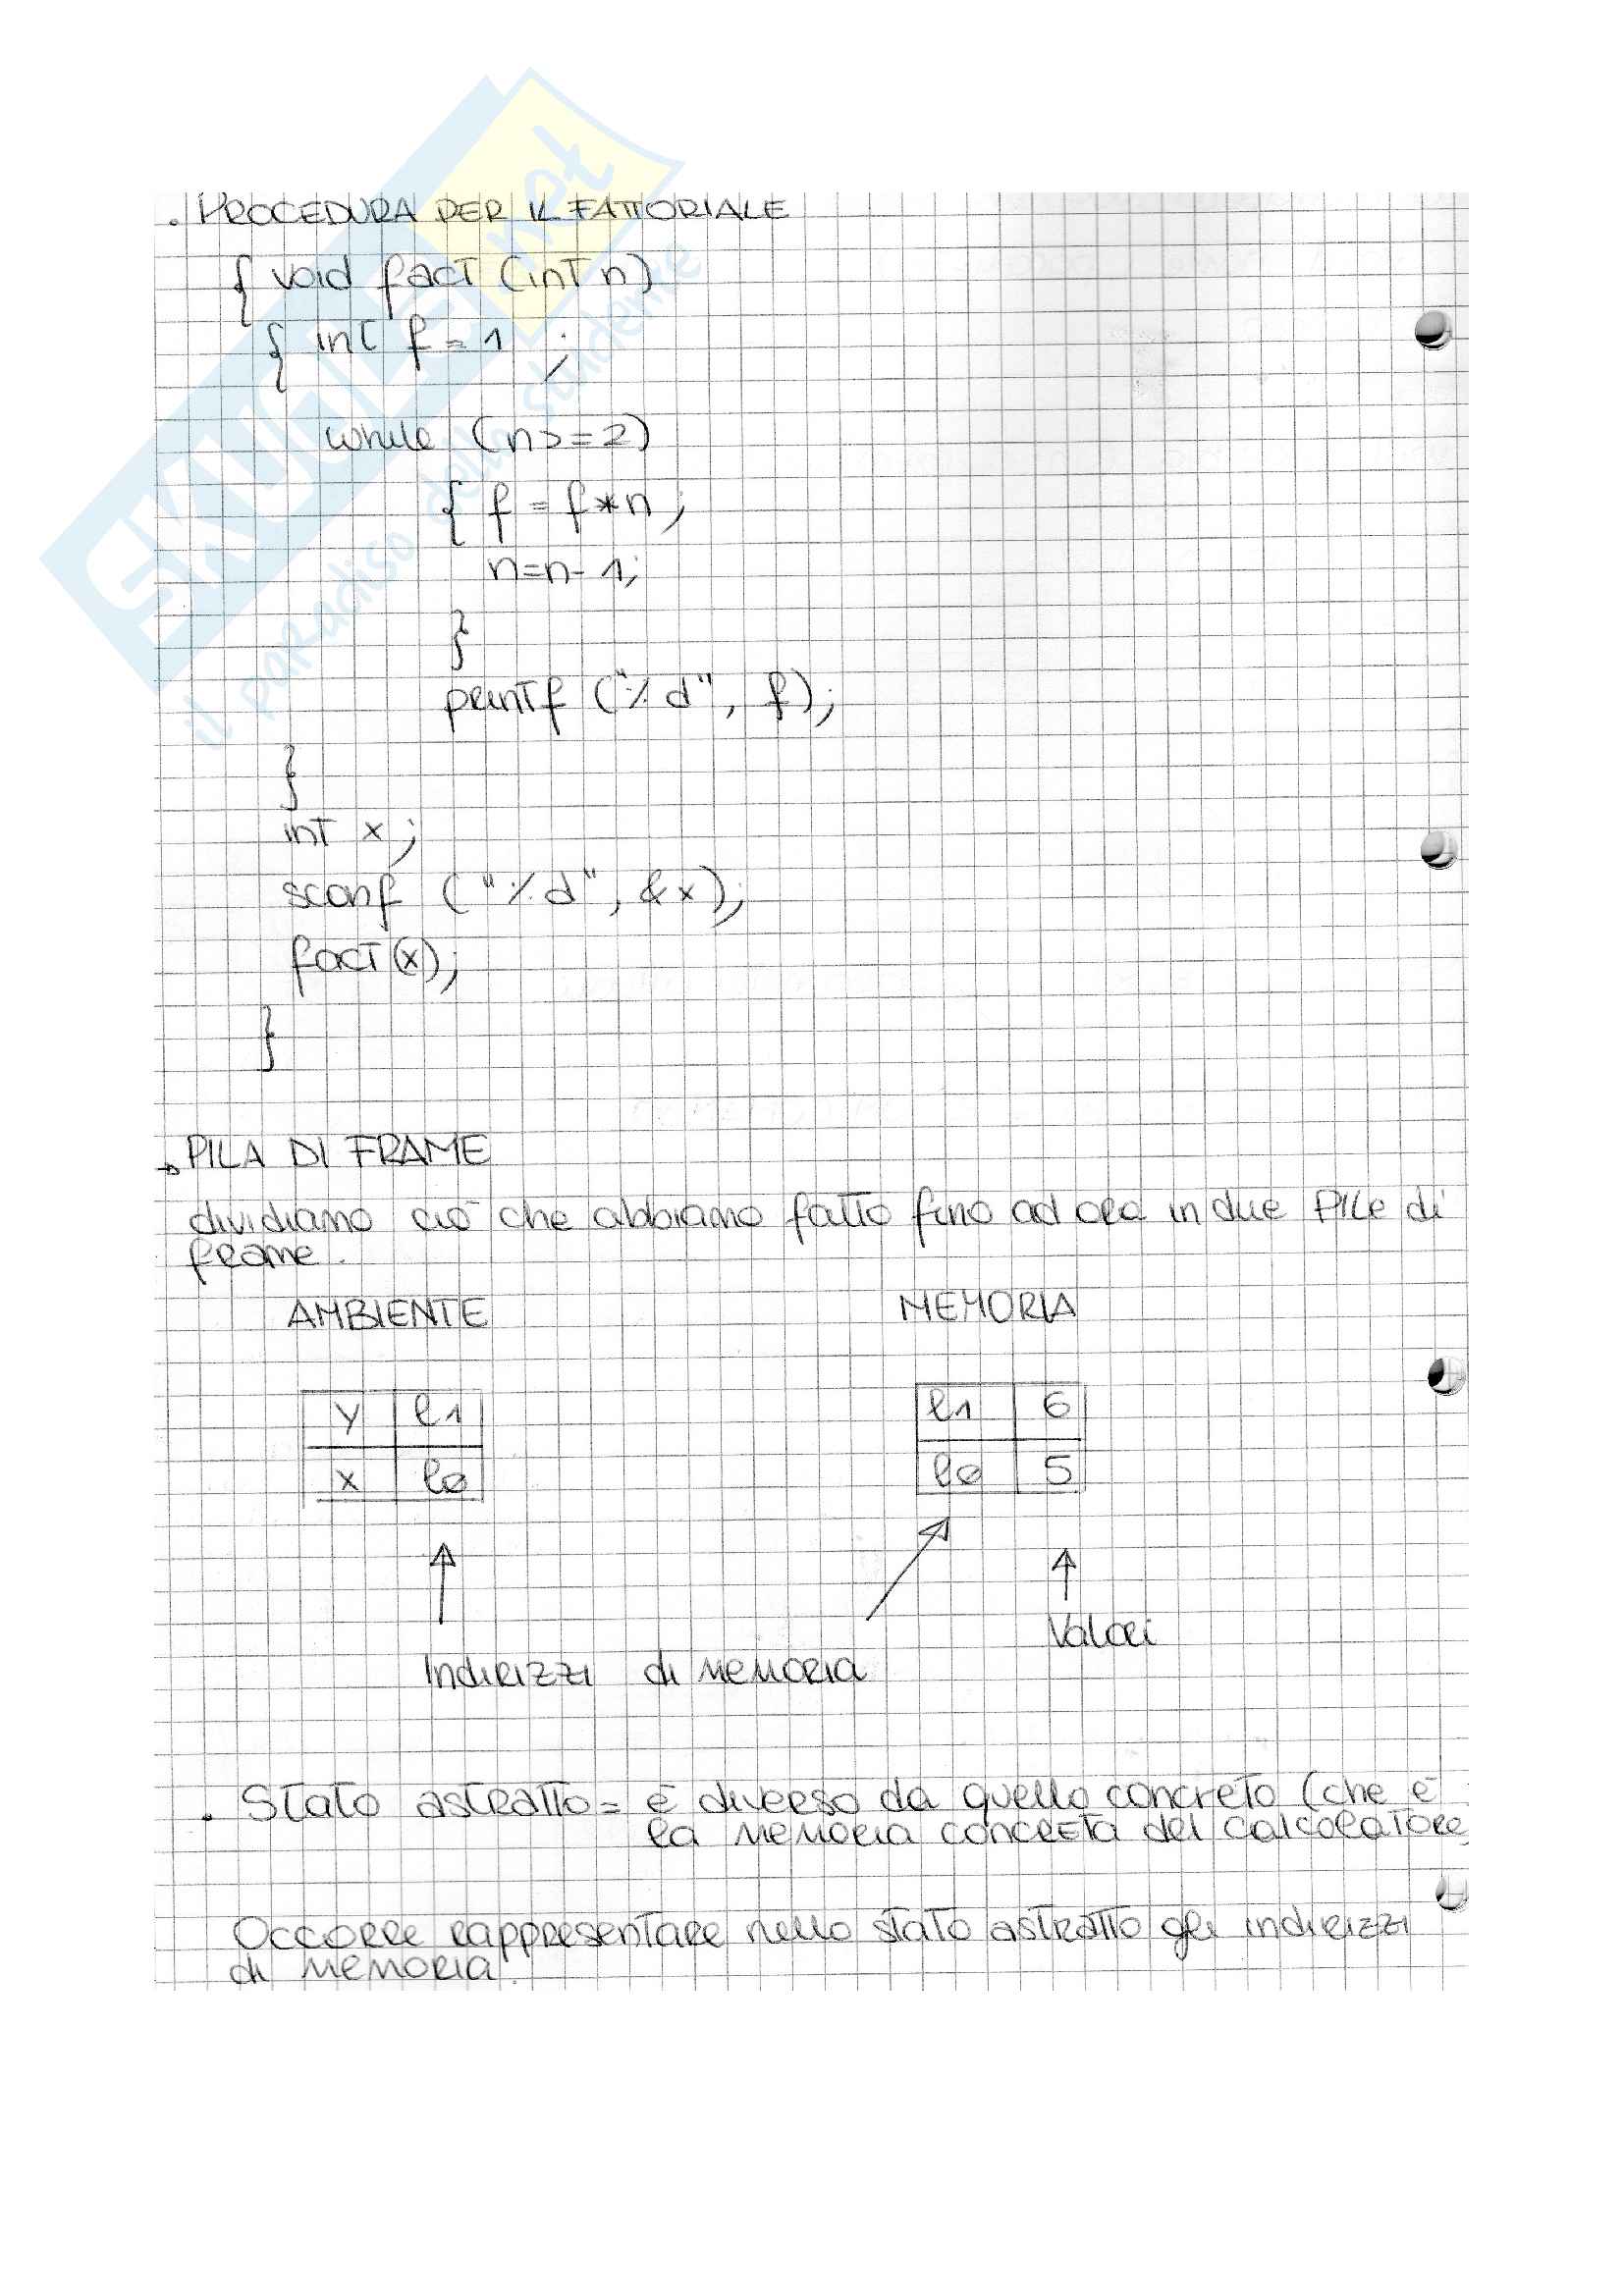 . PROCEDURA PER IL FATTORIALE
{ void fact (int n)
{ int f = 1 ;
while (n>=2)
{ f = f*n ;
n=n-1;
}
printf ("%d", f);
}
int x ;
scanf ("%d", &x);
fact(x);
}
→ PILA DI FRAME
dividiamo ciò che abbiamo fatto fino ad ora in due PILE di
frame.
AMBIENTE MEMORIA
y l1 l1 6
x l0 l0 5
Valori
Indirizzi di memoria
. Stato astratto = è diverso da quello concreto (che è
la memoria concreta del calcolatore)
Occorre rappresentare nello stato astratto gli indirizzi
di memoria.
SKUOLA.net
il paradiso dello studente